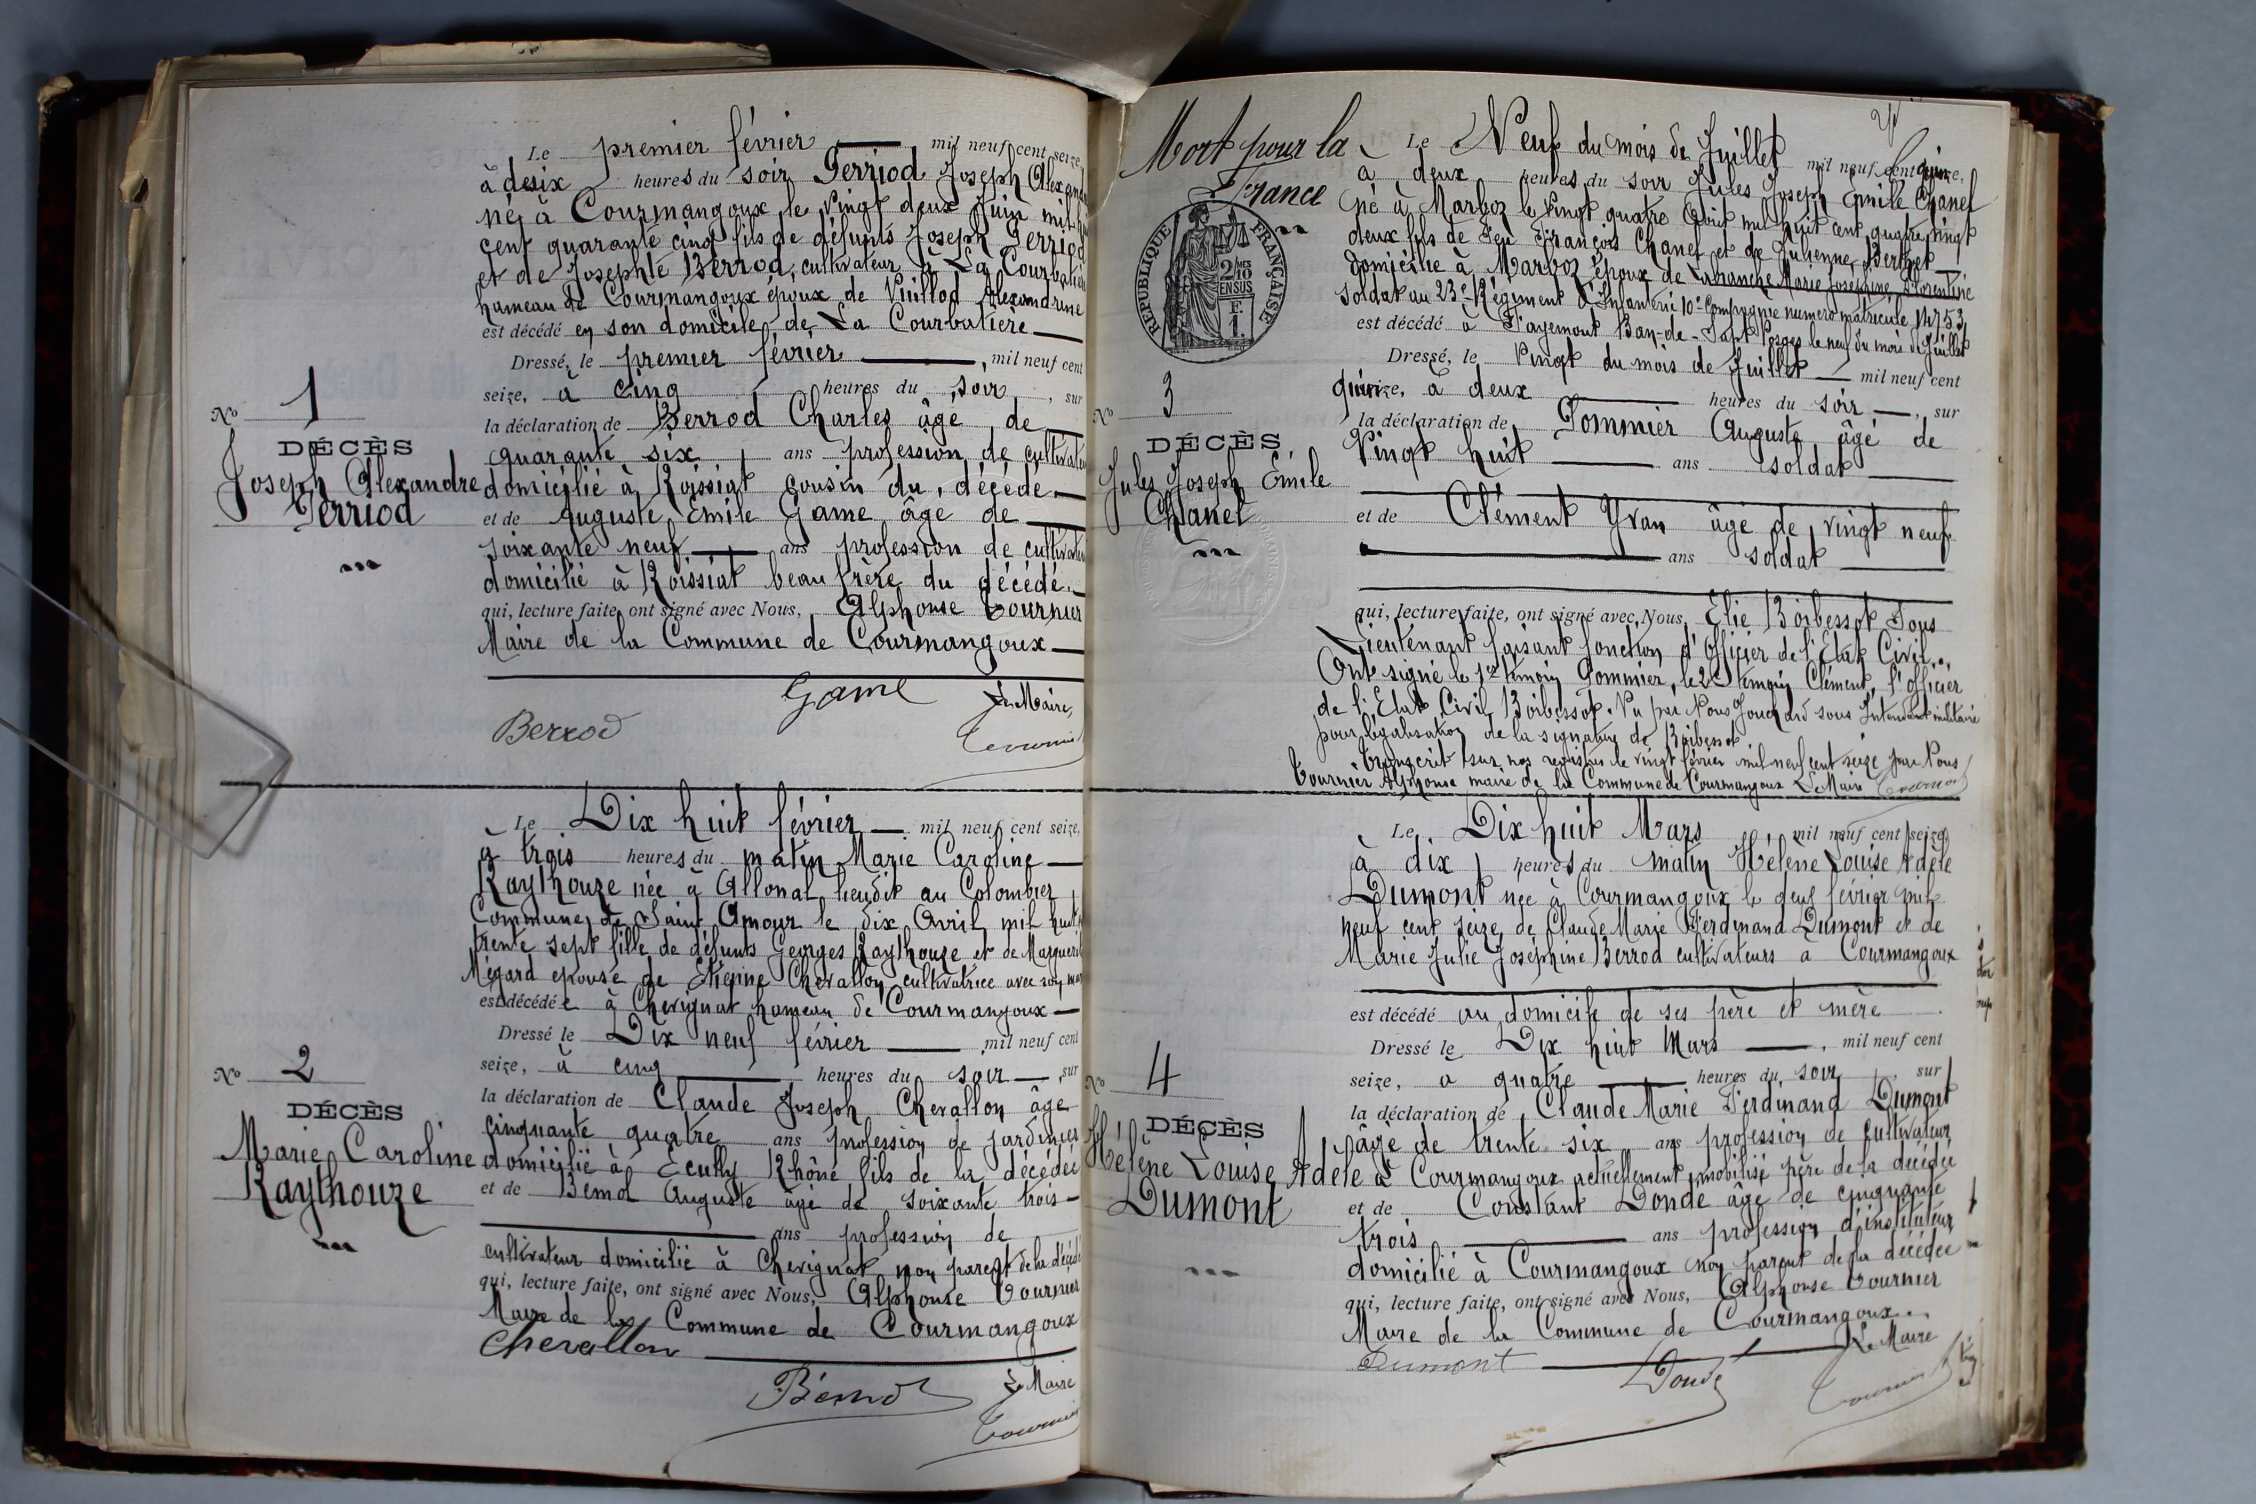 Le premier février mil neuf cent seize,
à desix heures du soir Perriod Joseph Alexandre
né à Courmangoux le vingt deux Juin mil huit
cent quarante cinq fils de défunts Joseph Perriod
et de Josephte Berrod, cultivateur à La Courbatière
hameau de Courmangoux époux de Vuillod Alexandrine
est décédé en son domicile de La Courbatière
Dressé, le premier février, mil neuf cent
seize, à cinq heures du soir, sur
la déclaration de Berrod Charles âgé de
quarante six ans profession de cultivateur
domicilié à Roissiat cousin du décédé
et de Auguste Emile Game âgé de
soixante neuf ans profession de cultivateur
domicilié à Roissiat beau frère du décédé
qui, lecture faite, ont signé avec Nous, Alphonse Tournier
Maire de la Commune de Courmangoux
Game
Le Maire,
Berrod
Tournier
No 1
DÉCÈS
Joseph Alexandre
Perriod
Le Dix huit février mil neuf cent seize,
à trois heures du matin Marie Caroline
Raythouze née à Allonal lieudit au Colombier
Commune de Saint Amour le dix Avril mil huit
trente sept fille de défunts Georges Raythouze et de Marguerite
Mégard épouse de Etienne Chevallon cultivatrice avec son mari
est décédée à Chevignat hameau de Courmangoux
Dressé le Dix neuf février, mil neuf cent
seize, à cinq heures du soir, sur
la déclaration de Claude Joseph Chevallon âgé
cinquante quatre ans profession de jardinier
domicilié à Ecully Rhône fils de la décédée
et de Bémol Auguste âgé de soixante trois
ans profession de
cultivateur domicilié à Chevignat non parent de la décédée
qui, lecture faite, ont signé avec Nous, Alphonse Tournier
Maire de la Commune de Courmangoux
Chevallon
Le Maire
Tournier
No 2
DÉCÈS
Marie Caroline
Raythouze
Mort pour la
France
RÉPUBLIQUE FRANÇAISE
2/10 MES
EN SUS
F.
1
Le Neuf du mois de Juillet mil neuf cent quinze,
à deux heures du soir Jules Joseph Emile Chanel
né à Marboz le vingt quatre Août mil huit cent quatre vingt
deux fils de feu François Chanel et de Julienne Berthet
domicilié à Marboz époux de Laranche Marie Joséphine Florentine
soldat au 23e Régiment d'Infanterie 10e Compagnie numéro matricule 14753
est décédé à Fayemont Ban-de-Sapt Vosges le neuf du mois de Juillet
Dressé, le vingt du mois de Juillet mil neuf cent
quinze, à deux heures du soir, sur
la déclaration de Pommier Auguste âgé de
vingt huit ans soldat
et de Clément Yvan âgé de vingt neuf
ans soldat
qui, lecture faite, ont signé avec Nous, Elie Boibessot Sous
Lieutenant faisant fonction d'Officier de l'Etat Civil.
Ont signé le 1er témoin Pommier, le 2e témoin Clément, l'officier
de l'Etat Civil Boibessot. Vu par Nous sous Intendant militaire
pour légalisation de la signature de Boibessot
Transcrit sur nos registres le vingt février mil neuf cent seize par Nous
Tournier Alphonse maire de la Commune de Courmangoux Le Maire Tournier
No 3
DÉCÈS
Jules Joseph Émile
Chanel
Le Dix huit Mars mil neuf cent seize
à dix heures du matin Hélène Louise Adèle
Dumont née à Courmangoux le deux février mil
neuf cent seize de Claude Marie Ferdinand Dumont et de
Marie Julie Joséphine Berrod cultivateurs à Courmangoux
est décédé au domicile de ses père et mère
Dressé le Dix huit Mars, mil neuf cent
seize, à quatre heures du soir, sur
la déclaration de Claude Marie Ferdinand Dumont
âgé de trente six ans profession de cultivateur
à Courmangoux actuellement mobilisé père de la décédée
et de Constant Donde âgé de cinquante
trois ans profession d'instituteur
domicilié à Courmangoux non parent de la décédée
qui, lecture faite, ont signé avec Nous, Alphonse Tournier
Maire de la Commune de Courmangoux
Le Maire
Dumont
Tournier
No 4
DÉCÈS
Hélène Louise Adèle
Dumont